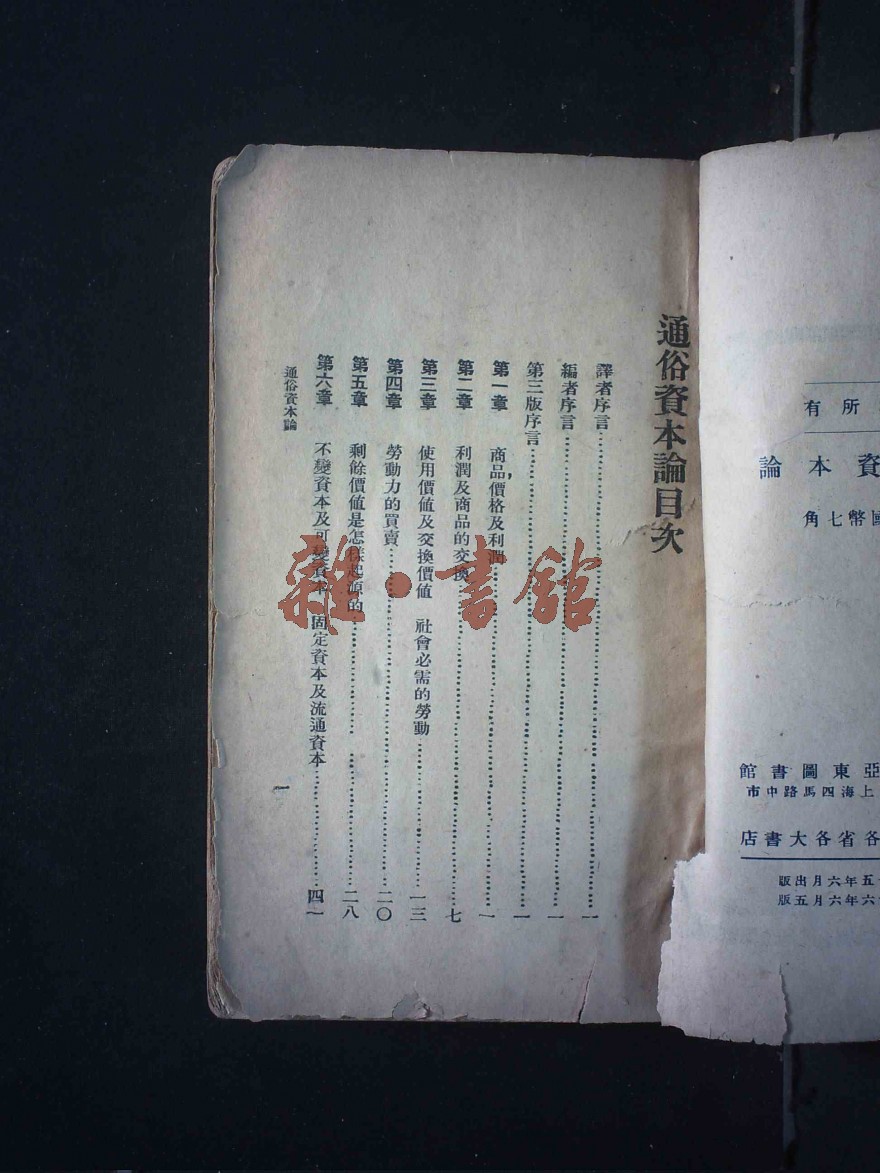 所有
資本論
國幣七角
亞東圖書館
上海四馬路中市
各省各大書店
五年六月出版
六年六月五版
通俗資本論目次
譯者序言……一
編者序言……一
第三版序言……一
第一章 商品,價格及利潤……一
第二章 利潤及商品的交換……七
第三章 使用價值及交換價值 社會必需的勞動……一三
第四章 勞動力的買賣……二〇
第五章 剩餘價值是怎樣起源的……二八
第六章 不變資本及可變資本 固定資本及流通資本……四一
通俗資本論
一
雜·書館